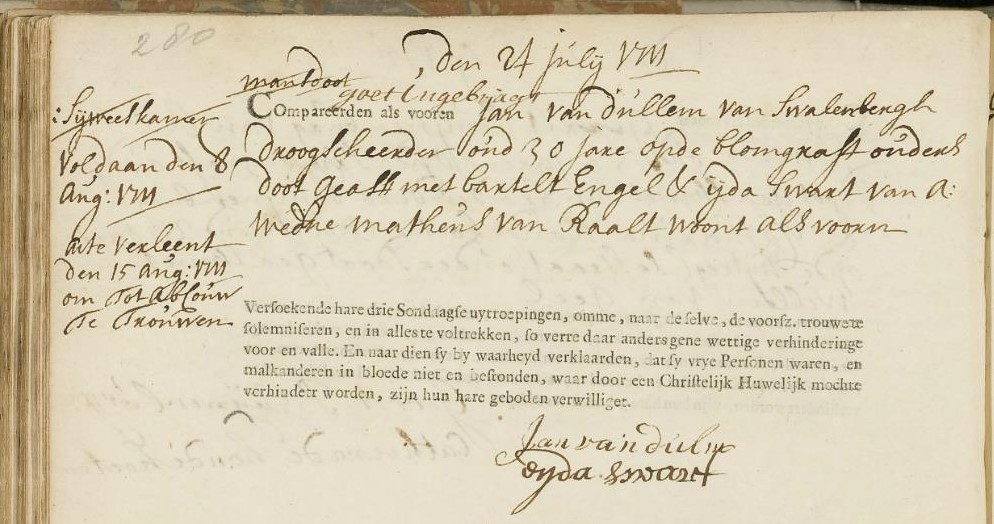 280
den 24 july 1711
mans doot
goet Ingebragt
: Sijweeskamer
Voldaan den 8
Aug: 1711
acte verleent
den 15 Aug: 1711
om Tot Abcouw
Te Trouwen
COmpareerden als vooren Jan van dullem van Swalenbergh
droogscheerder oud 30 jare opde blomgraft ouders
doot geass met bartelt Engel & ijda Swart van A:
wedue matheus van Raalt woont als voorn
Versoekende hare drie Sondaagse uytroepingen, omme, naar de selve, de voorsz. trouwe te
solemniseren, en in alles te voltrekken, so verre daar anders gene wettige verhinderinge
voor en valle. En naar dien sy by waarheyd verklaarden, dat sy vrye Personen waren, en
malkanderen in bloede niet en bestonden, waar door een Christelijk Huwelijk mochte
verhindert worden, zijn hun hare geboden verwilliget.
Jan van dulm
eyda swart